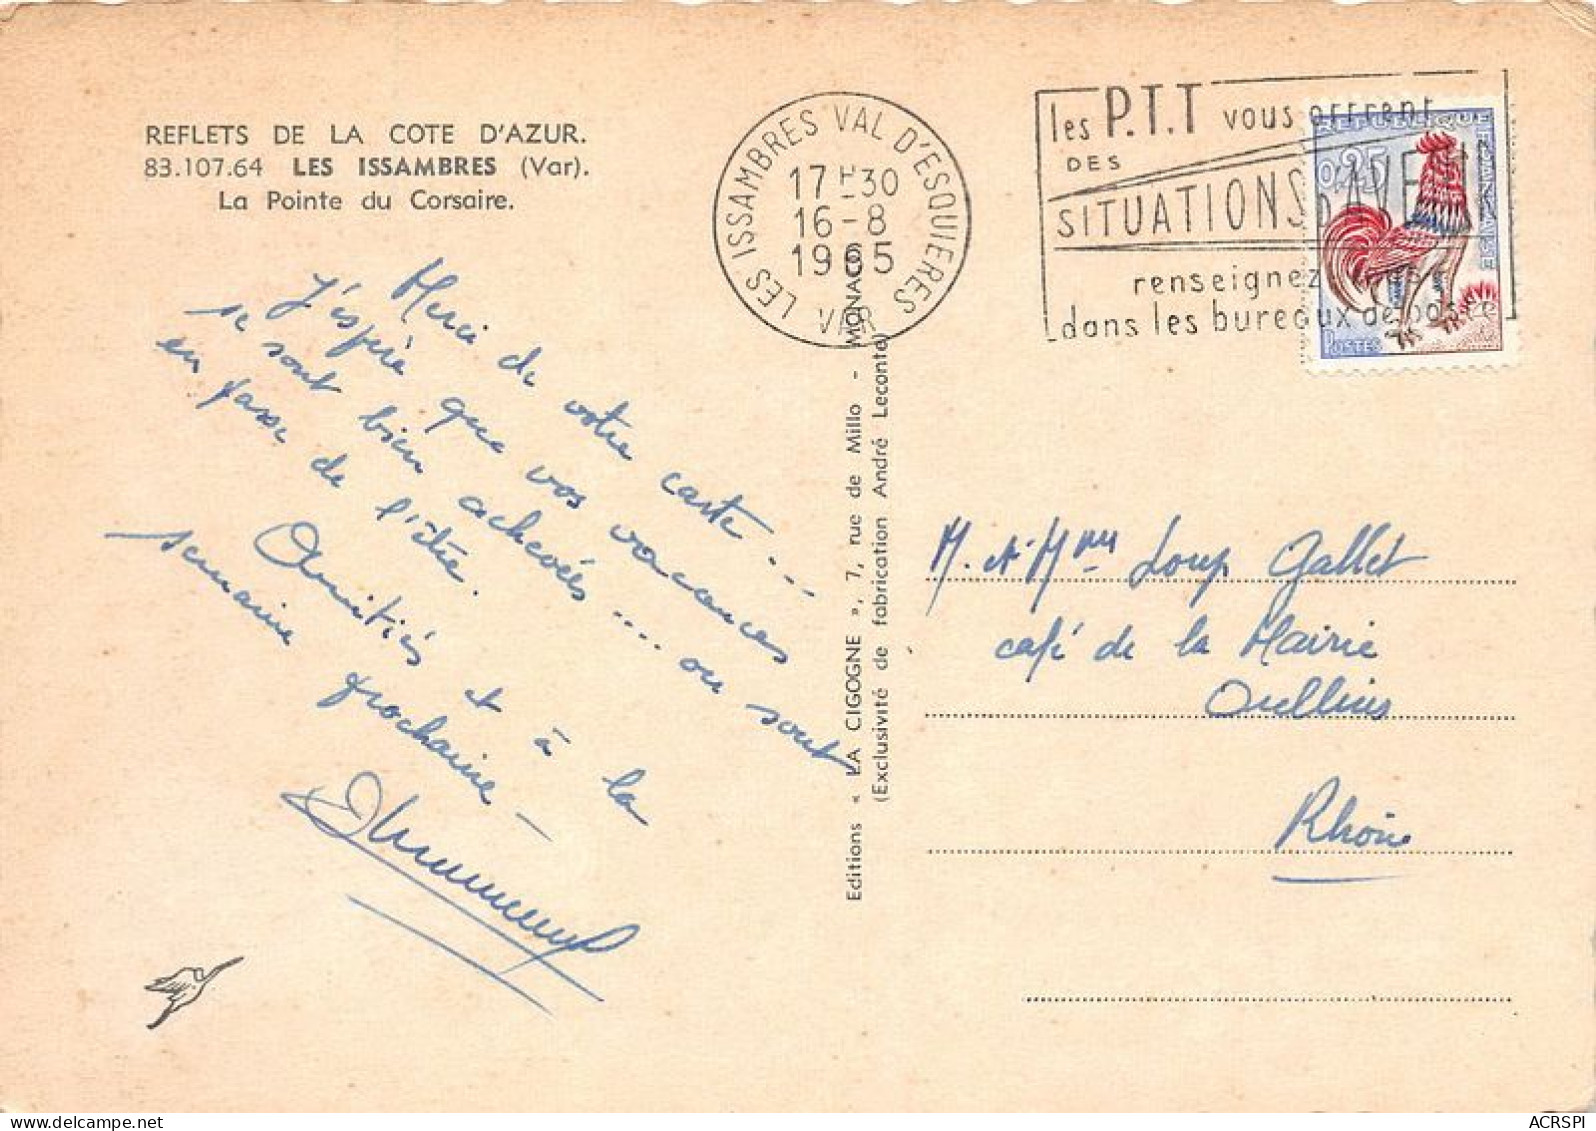 REFLETS DE LA COTE D'AZUR.
83.107.64 LES ISSAMBRES (Var).
La Pointe du Corsaire.
Merci de votre carte...
J'espère que vos vacances
se sont bien achevées .... ou sont
en passe de l'être.
Amitiés et à la
semaine prochaine -
Editions « LA CIGOGNE », 7, rue de Millo - MONACO
(Exclusivité de fabrication André Leconte)
LES ISSAMBRES VAL D'ESQUIERES
17H30
16-8
1965
VAR
les P.T.T vous offrent
DES
SITUATIONS D'AVENIR
renseignez-vous
dans les bureaux de poste
REPUBLIQUE FRANÇAISE
0,25
POSTES
M. et Mme Loup Gallet
café de la Mairie
Oullins
Rhône
delcampe.net
ACRSPI